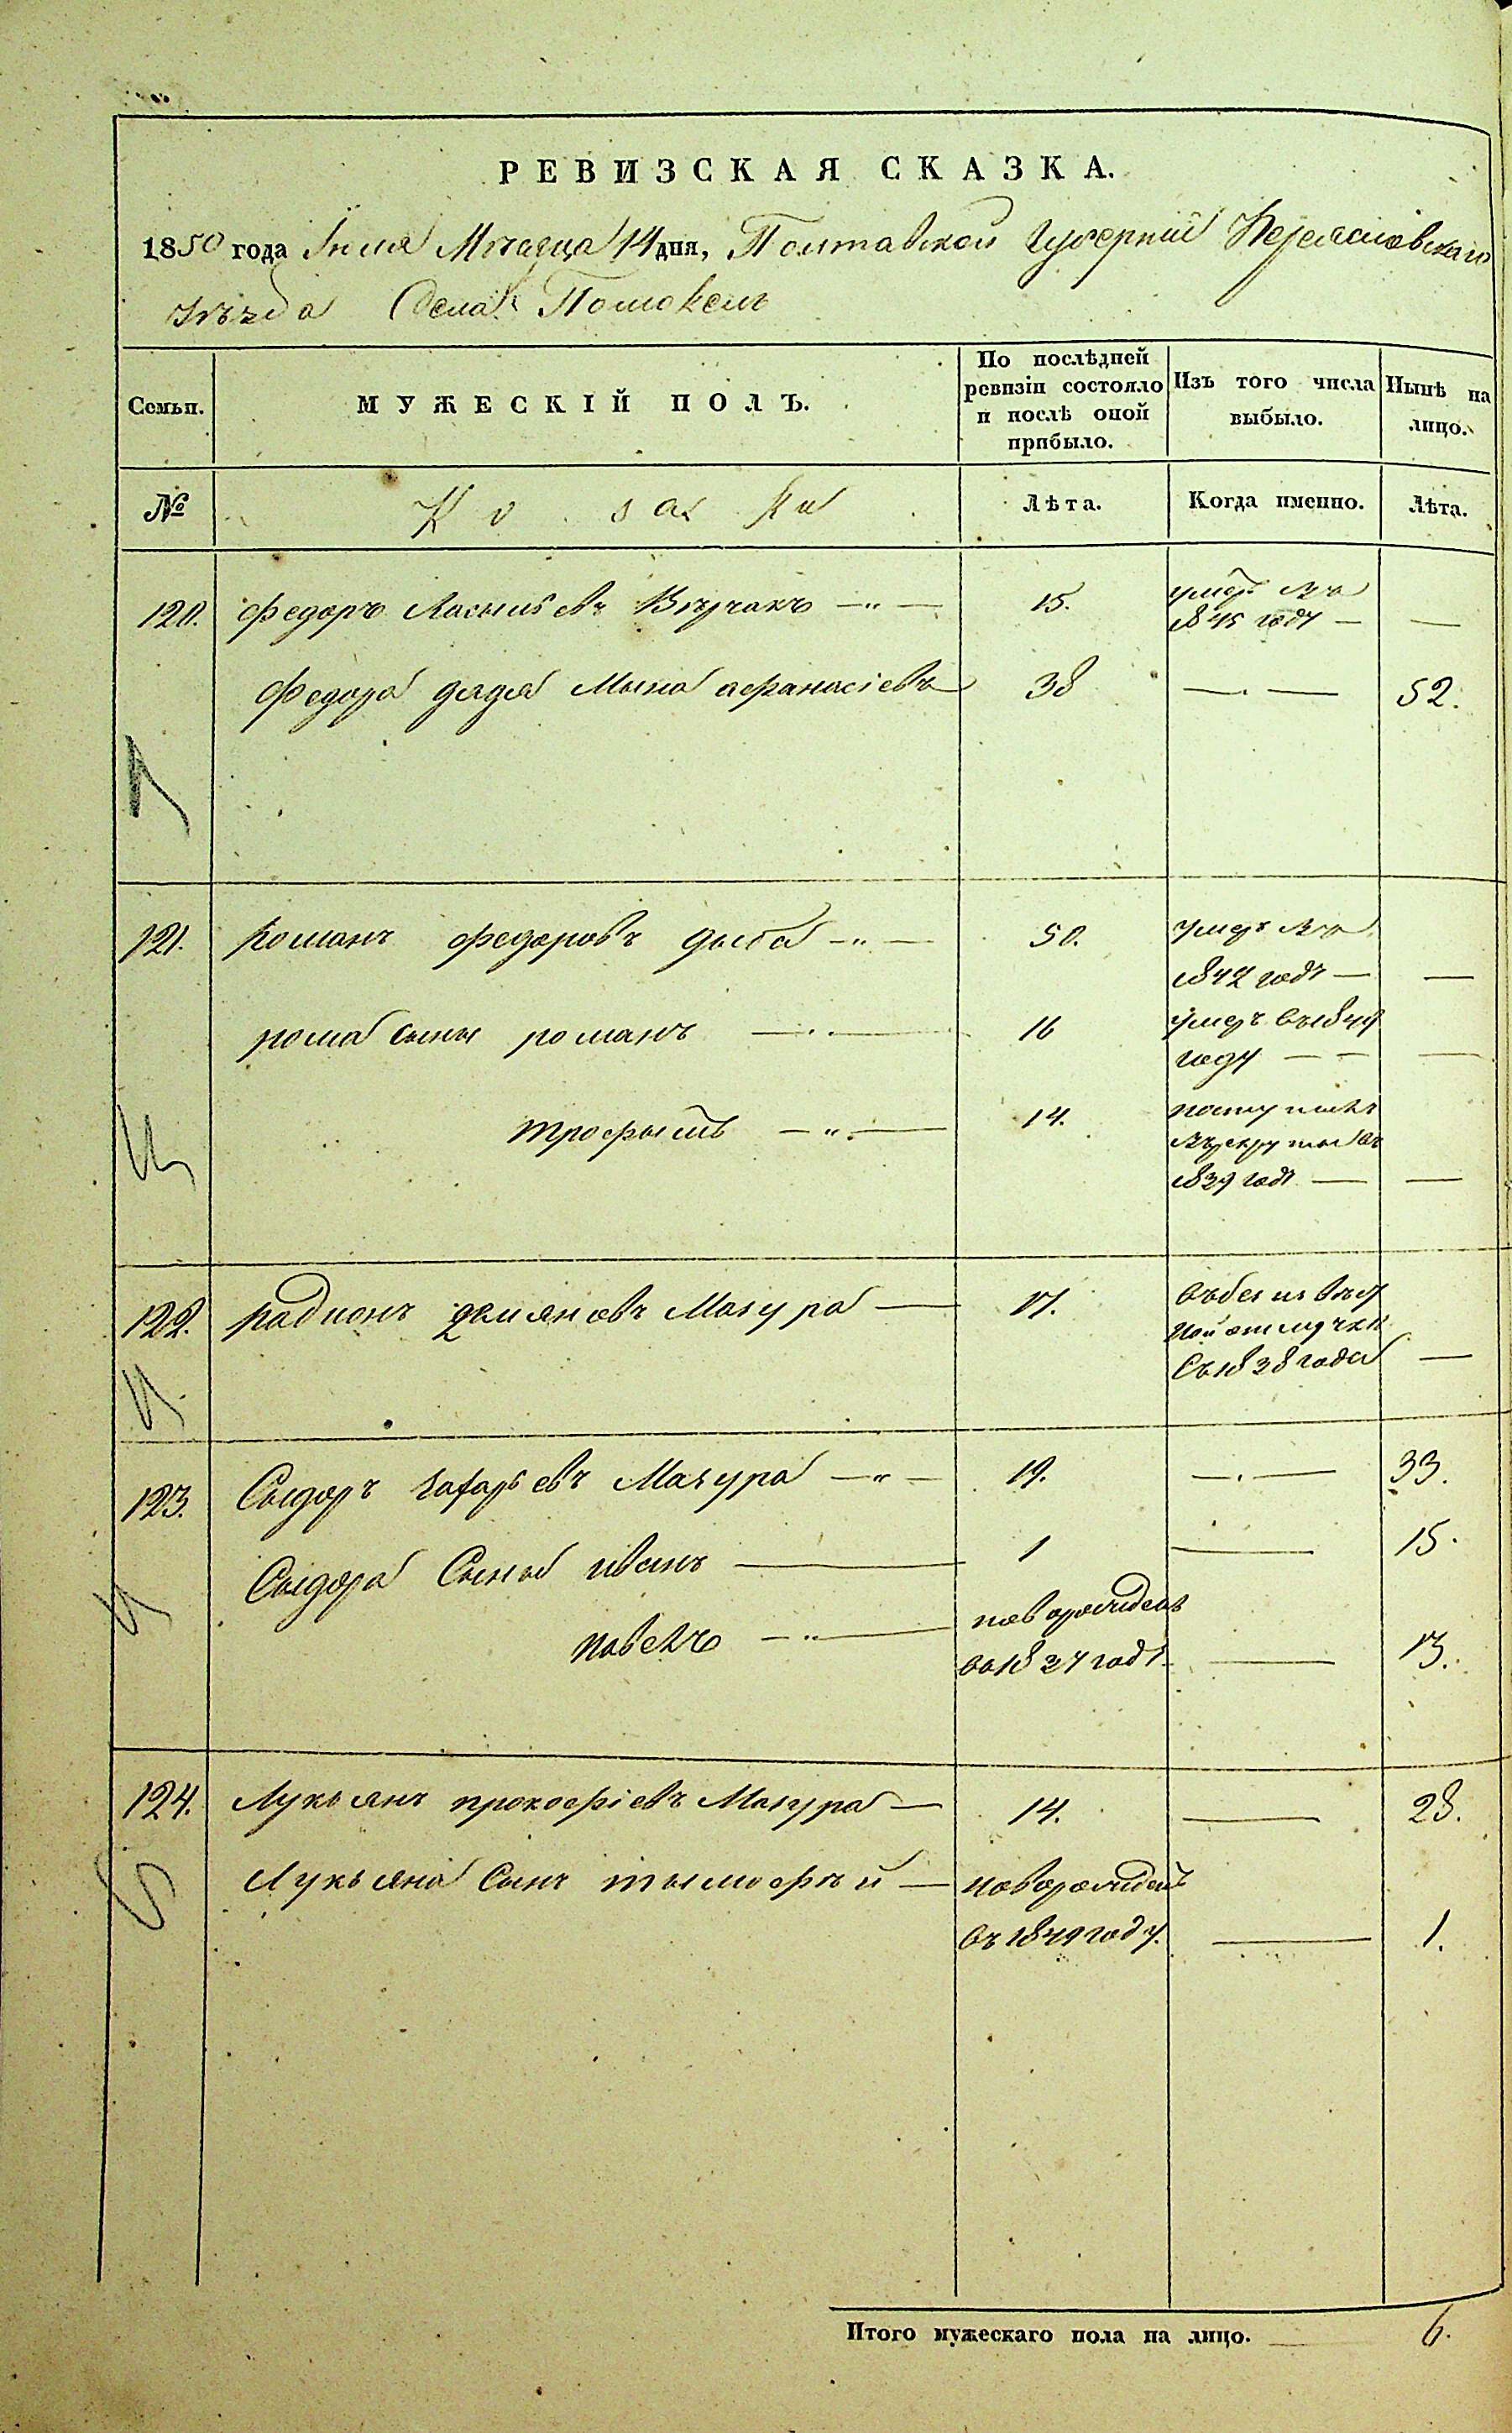 РЕВИЗСКАЯ СКАЗКА.
1850 года Іюля Мѣсяца 14 дня, Полтавской Губерніи Переяславскаго
уѣзда Села Помокель
Семьи. МУЖЕСКІЙ ПОЛЪ. По послѣдней ревизіи состояло и послѣ оной прибыло. Изъ того числа выбыло. Нынѣ на лицо.
№ Козаки Лѣта. Когда именно. Лѣта.
120. Федоръ Васильевъ —„— 15. умеръ въ 1845 году — —
Федора дядя Мына афанасіевъ 38 —.— 52.
121. Романъ федоровъ дыба —„— 50. умеръ въ 1842 годѣ — —
рома сыны романъ —.— 16 умеръ въ 1849 году — — —
трофымъ —„.— 14. въ рекруты въ 1839 годѣ — —
122. Радионъ демяновъ Мазура — 17. отлучки съ 1838 года —
123. Сыдоръ захарьевъ Мазура —„— 19. —.— 33.
Сыдора Сыны иванъ — 1 — 15.
павелъ —„— новорожденъ въ 1837 годѣ — 13.
124. Лукьянъ прокофіевъ Мазура — 14. — 28.
Лукьяна Сынъ тымофѣй — новорожденъ въ 1849 году. — 1.
Итого мужескаго пола на лицо. — 6.